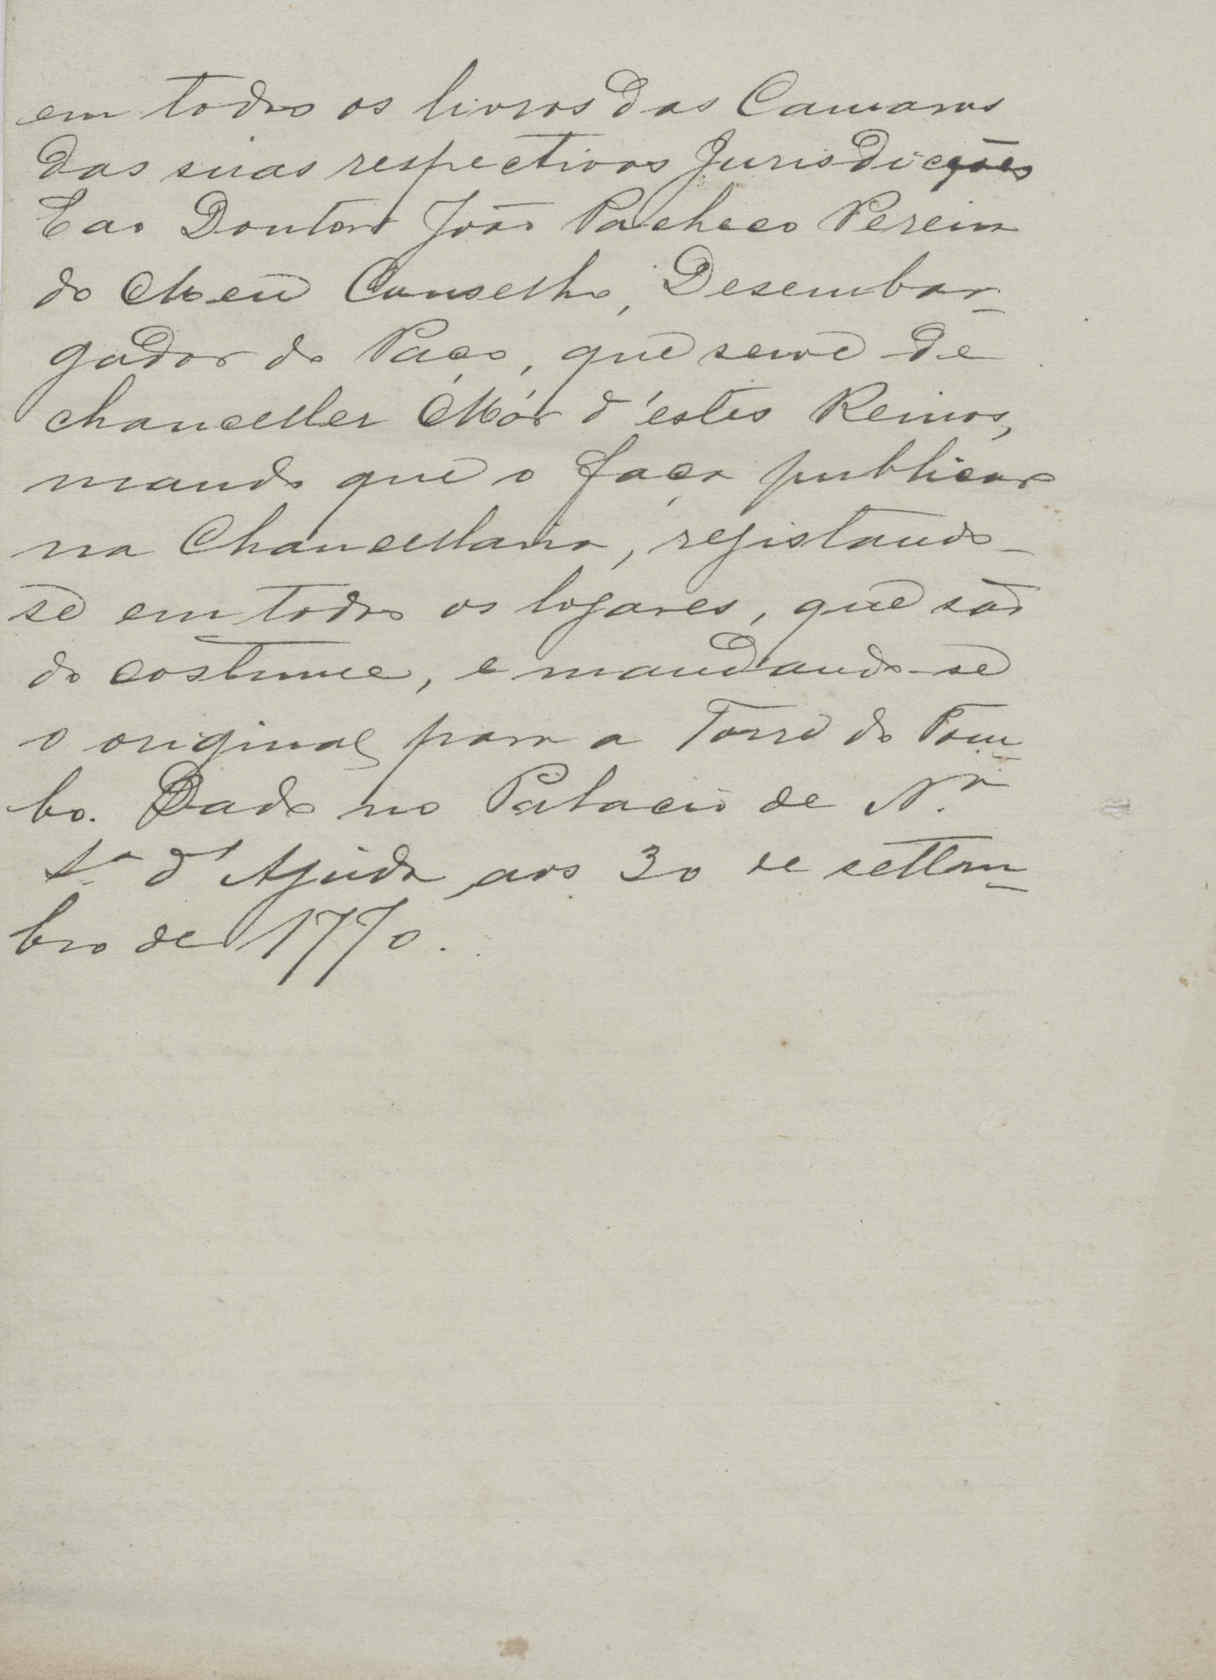 em todos os livros das Camaras
das suas respectivas Jurisdicções
E ao Doutor João Pacheco Pereira
do Meu Conselho, Desembar-
gador do Paço, que serve de
chanceller Mór d'estes Reinos,
mando que o faça publicar
na Chancellaria, registando-
se em todos os logares, que são
do costume, e mandando-se
o original para a Torre do Tom-
bo. Dado no Palacio de N.ª
Sª d'Ajuda aos 30 de settem-
bro de 1770.